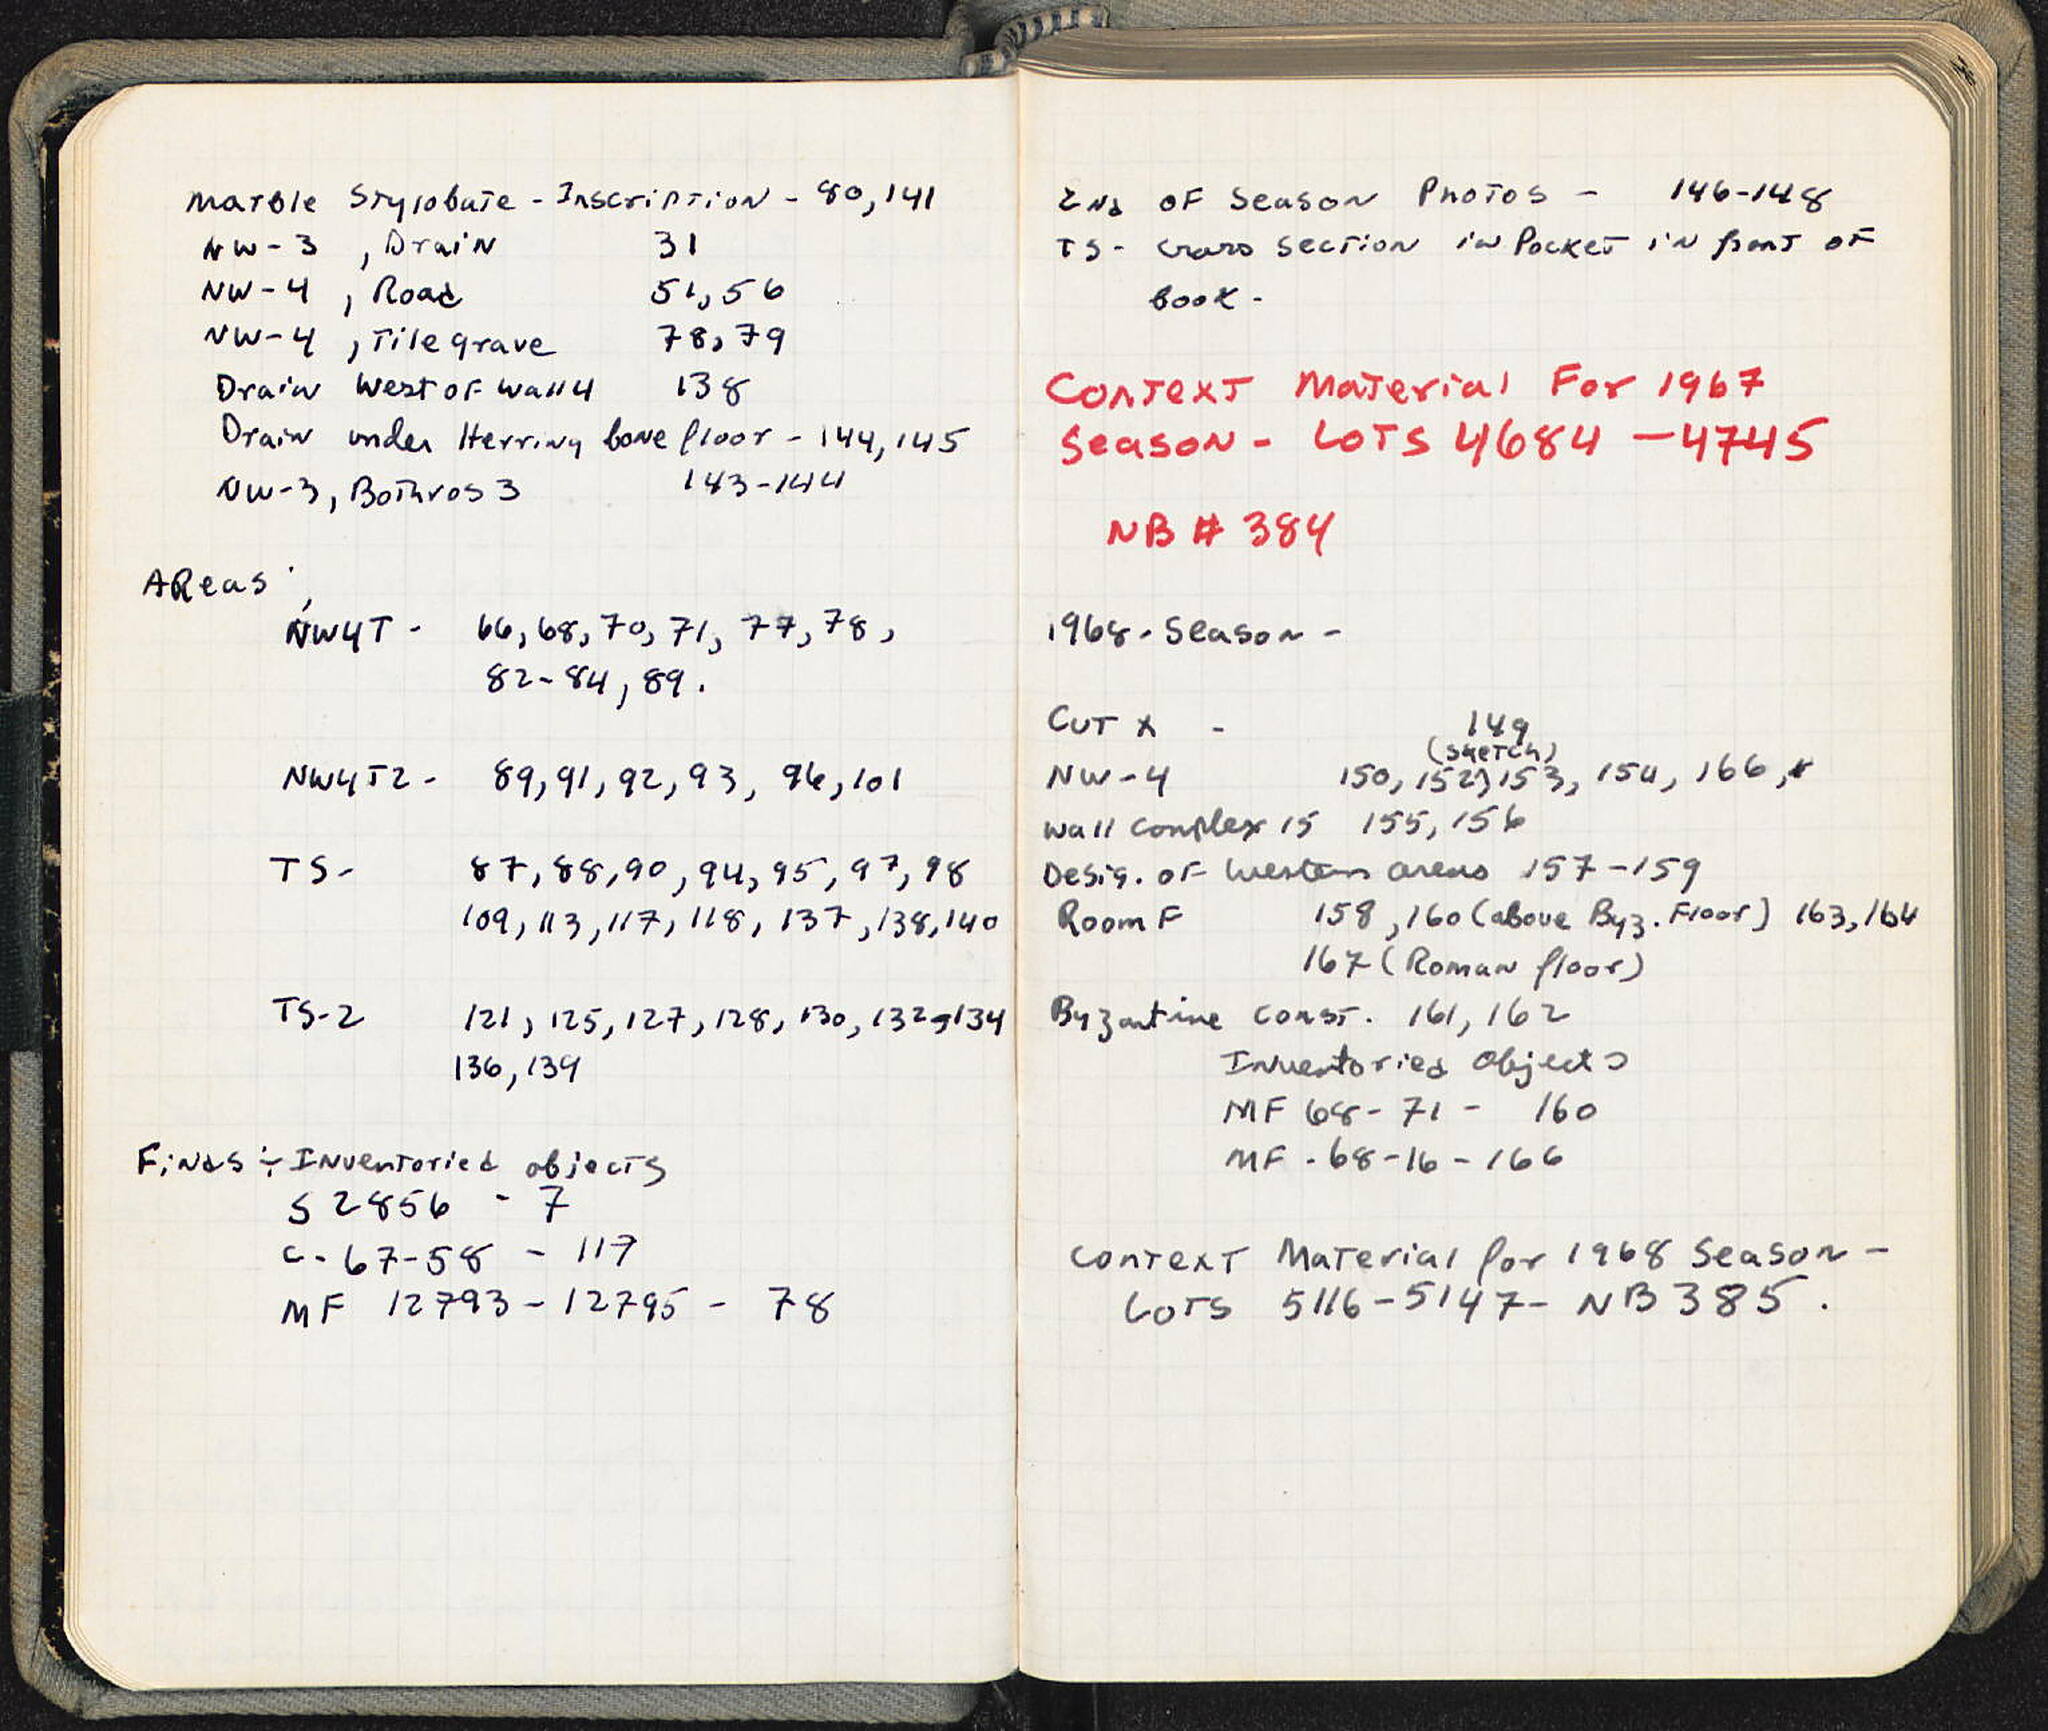 Marble Stylobate - Inscription - 80, 141
NW-3 , Drain 31
NW-4 , Road 51, 56
NW-4 , Tile grave 78, 79
Drain West of Wall 4 138
Drain under Herring bone floor - 144, 145
NW-3, Bothros 3 143-144
Areas :
NW4T - 66, 68, 70, 71, 77, 78,
82-84, 89.
NW4T2 - 89, 91, 92, 93, 96, 101
TS - 87, 88, 90, 94, 95, 97, 98
109, 113, 117, 118, 137, 138, 140
TS-2 121, 125, 127, 128, 130, 132, 134
136, 139
Finds : Inventoried objects
S 2856 - 7
C-67-58 - 117
MF 12793 - 12795 - 78
End of Season Photos - 146-148
TS - Cross Section in Pocket in front of
book -
Context Material For 1967
Season - Lots 4684 - 4745
NB # 384
1968 - Season -
Cut X - 149
(sketch)
NW-4 150, 152, 153, 154, 166,
Wall Complex 15 155, 156
Desig. of Western areas 157-159
Room F 158, 160 (above Byz. Floor) 163, 164
167 (Roman floor)
Byzantine Const. 161, 162
Inventoried Objects
MF 68-71 - 160
MF-68-16 - 166
Context Material for 1968 Season -
Lots 5116-5147- NB 385.